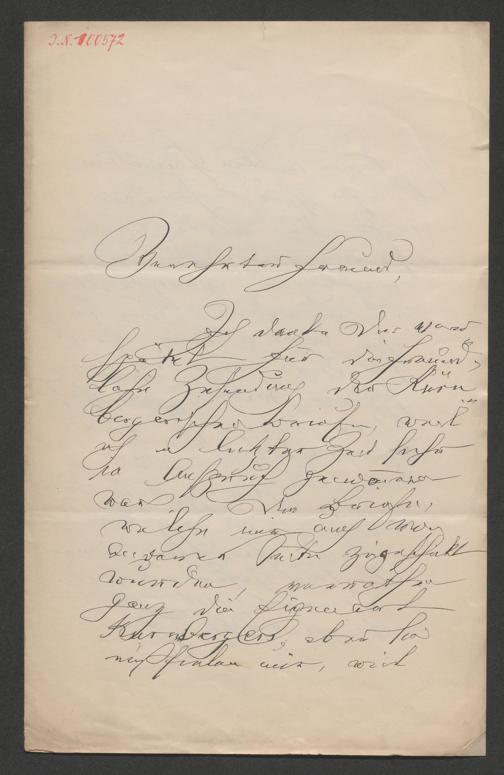 J.N. 100572
Verehrter Freund,
Ich danke Ihnen ver
spätet für die freund-
liche Zusendung der Kürn
bergerschen Briefe, weil
ich in letzter Zeit sehr
in Anspruch genommen
war. Die Briefe,
welche mir auch von
anderer Seite zugeschickt
wurden,
ganz die Eigenart
Kürnbergers, aber sie
mir, weil